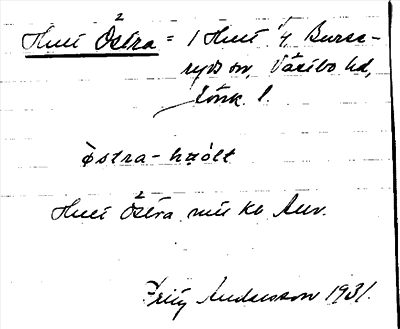 Hult Östra = 1 Hult i Burse-
ryds sn, Västbo hd,
Jönk. l.
östra-hu̥ólt
Hult Östra
Fritz Andersson 1931.